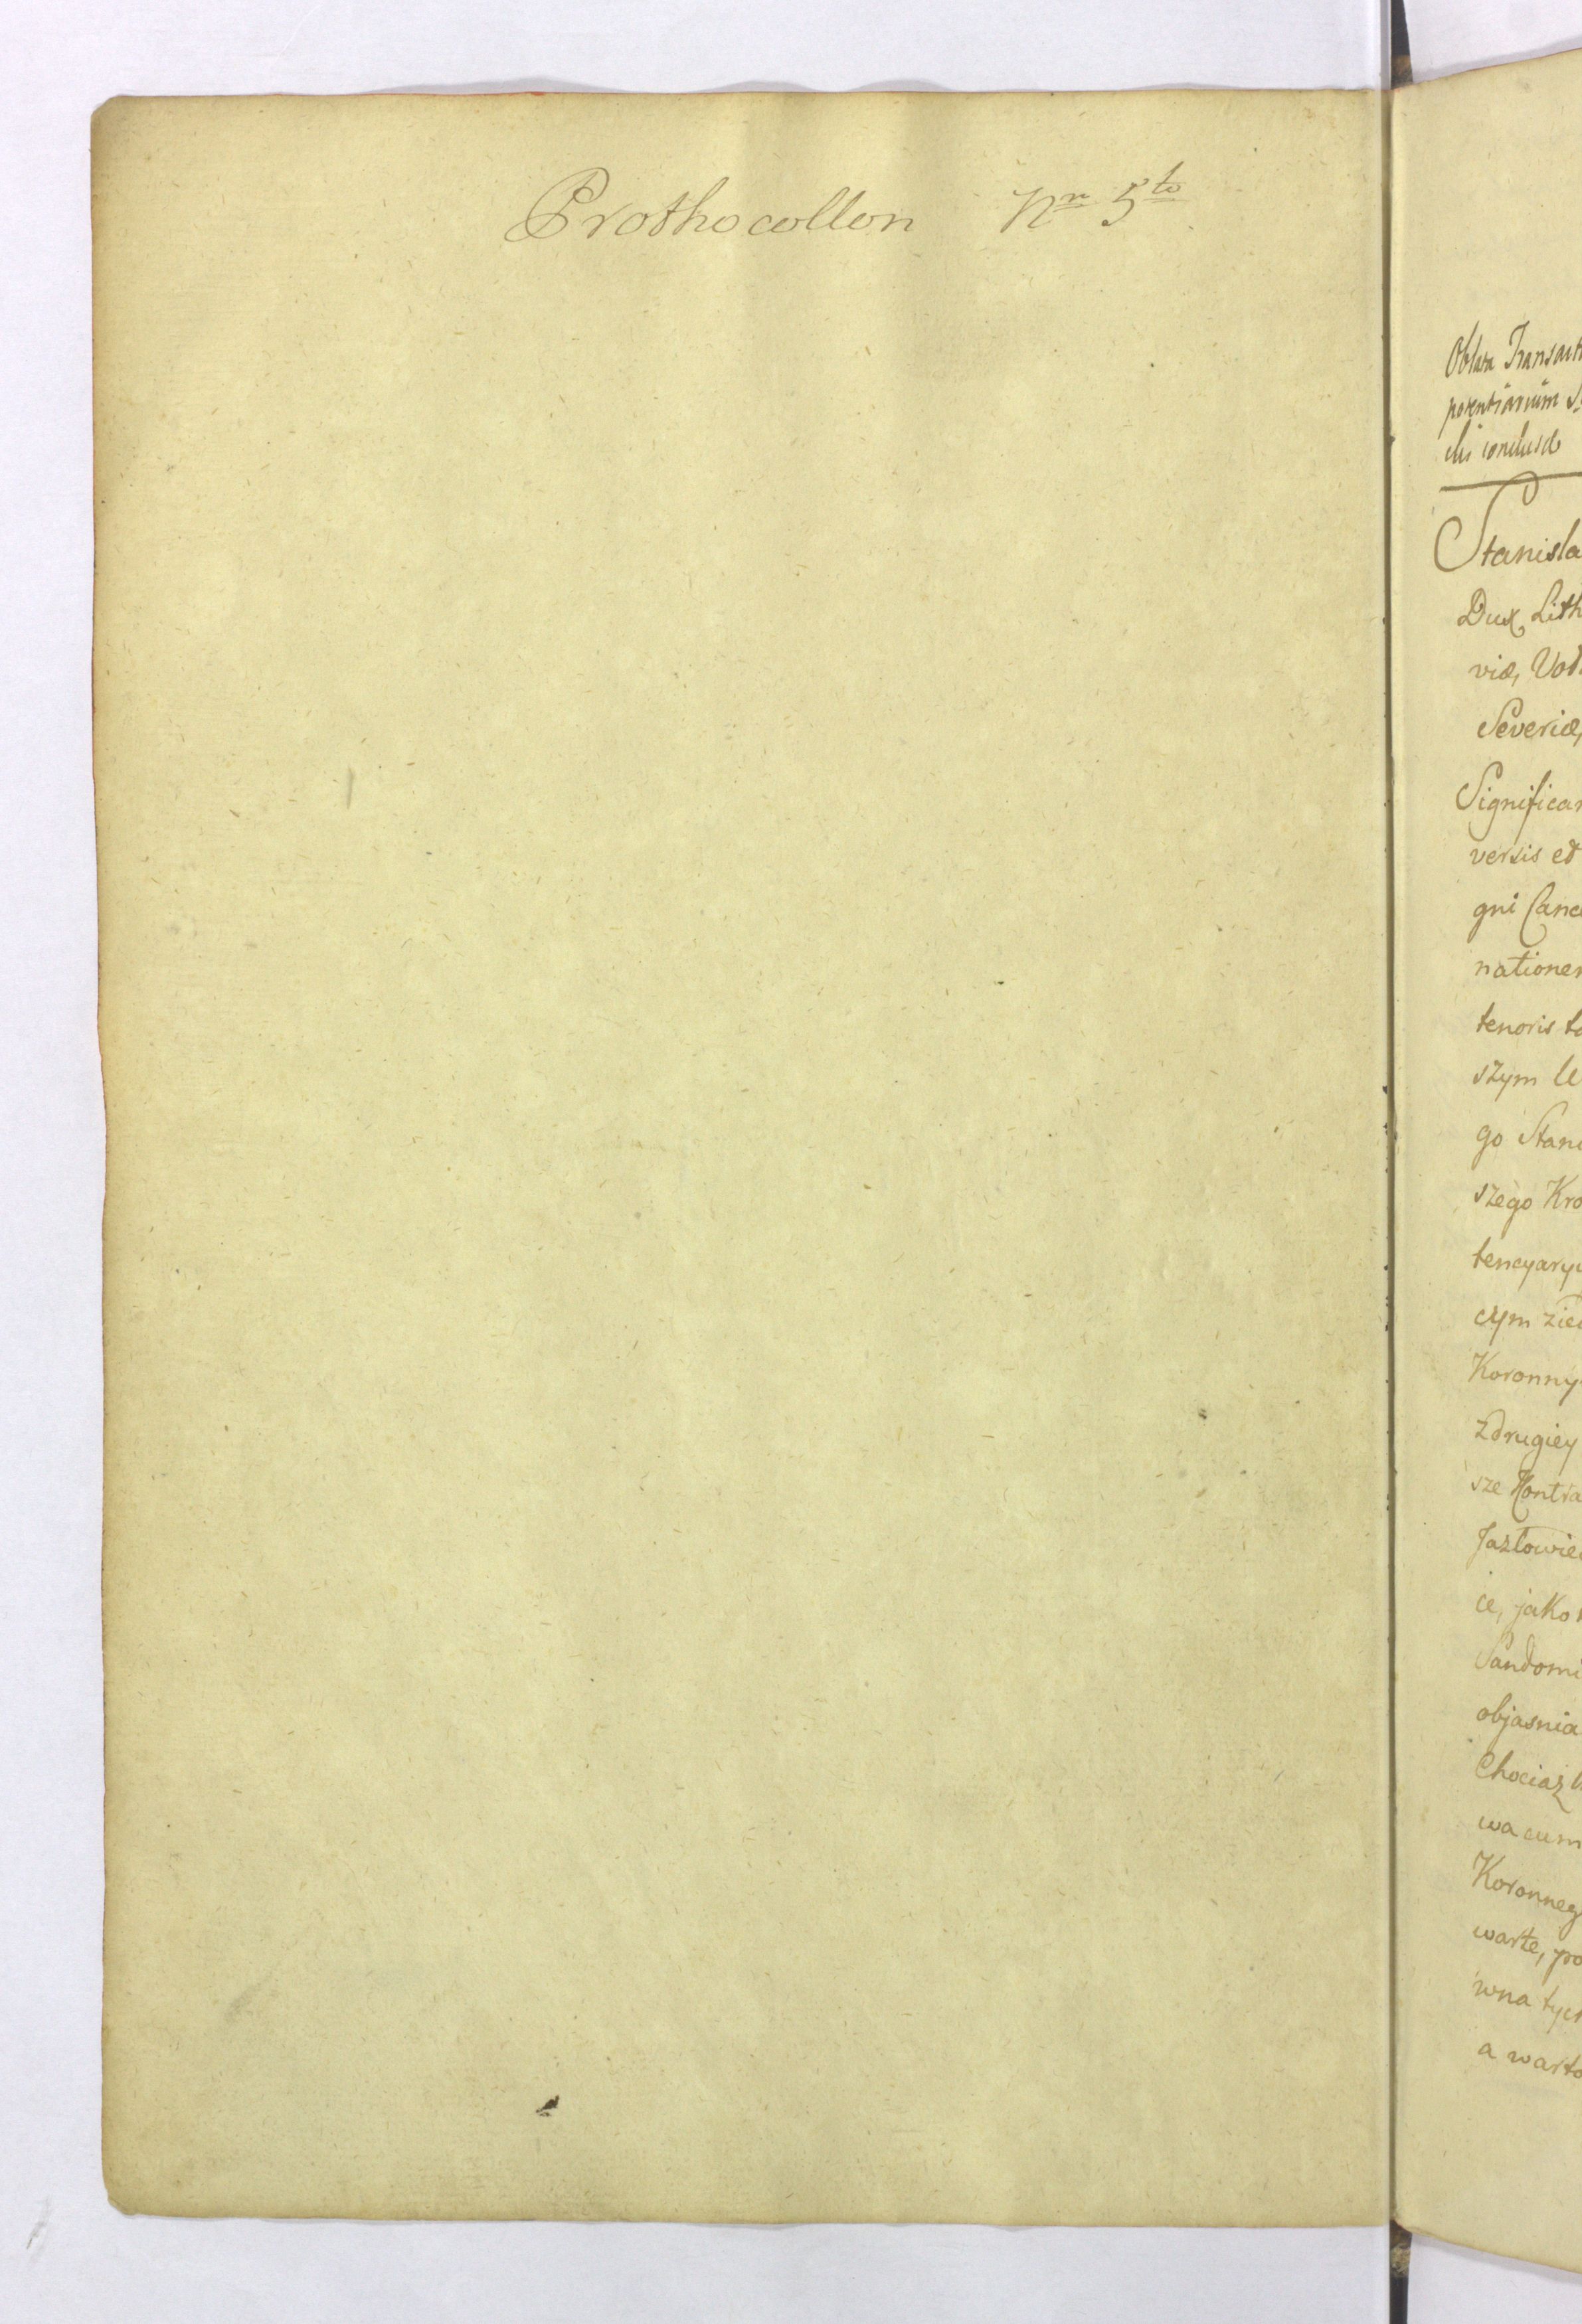 Prothocollon Nr 5to
Oblata Transact
potentiarium S
conclusæ
Stanisla
Dux Lith
viæ, Vol
Severiæ,
Significa
versis et
gni Canc
nationem
tenoris ta
szym U
go Stani
szego Kro
tencyary
cym zie
Koronny
Zdrugiey
sze Kontra
Jazłowie
ce, jako
Sandomi
objasnia
Chociaż
wa cum
Koronneg
warte, po
wna tyc
a warto